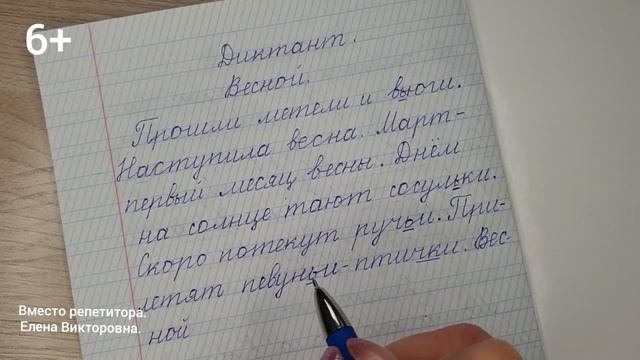 6+
Диктант.
Весной.
Прошли метели и вьюги.
Наступила весна. Март-
первый месяц весны. Днём
на солнце тают сосульки.
Скоро потекут ручьи. При-
летят певуньи-птички. Вес-
ной
Вместо репетитора.
Елена Викторовна.